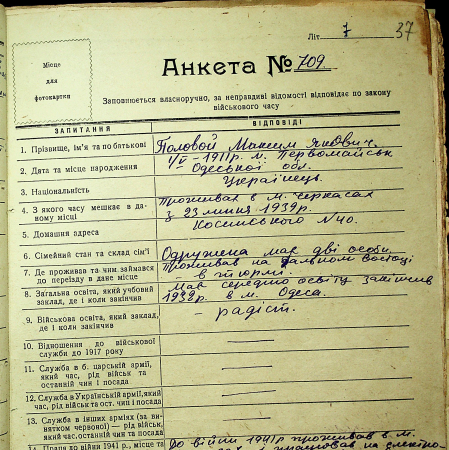 Літ. 7 37
Місце
для
фотокартки
Анкета № 709.
Заповнюється власноручно, за неправдиві відомості відповідає по закону
військового часу
ЗАПИТАННЯ ВІДПОВІДІ
1. Прізвище, ім'я та по батькові Половой Максим Якович.
2. Дата та місце народження 1/V - 1911р. м. Первомайськ
Одеської обл.
3. Національність Українець.
4. З якого часу мешкає в да-
ному місці Проживав в м. Черкасах
з 23 липня 1939р.
5. Домашня адреса №40.
6. Сімейний стан та склад сім'ї Одружена має дві особи.
7. Де проживав та чим займався
до переїзду в дане місце Проживав на дальном востоці
в тюрмі.
8. Загальна освіта, який учбовий
заклад, де і коли закінчив Має середню освіту закінчив
1932р. в м. Одеса.
9. Військова освіта, який заклад,
де і коли закінчив — радіст.
10. Відношення до військової
служби до 1917 року —
11. Служба в б. царській армії,
який час, рід військ та
останній чин і посада —
12. Служба в Українській армії, який
час, рід військ та ост. чин і посада —
13. Служба в інших арміях (за ви-
нятком червоної) — рід військ,
який час, останній чин та посада —
14. Праця до війни 1941 р., місце та До війни 1941р проживав в м.